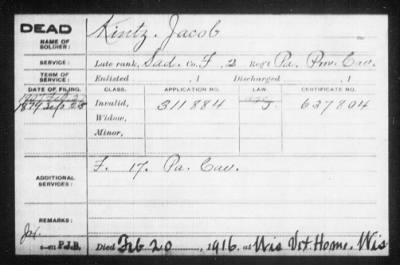 DEAD
NAME OF SOLDIER: Kintz, Jacob
SERVICE: Late rank, Sad. Co. F, 2 Reg't Pa. Prov. Cav.
TERM OF SERVICE: Enlisted , 1 Discharged , 1
DATE OF FILING. CLASS. APPLICATION NO. LAW. CERTIFICATE NO.
1879 Sep 23 Invalid, 311884 J 637804
Widow,
Minor,
ADDITIONAL SERVICES: F. 17. Pa. Cav.
REMARKS:
P.J.B. Died Feb 20, 1916, at Wis Vet. Home. Wis